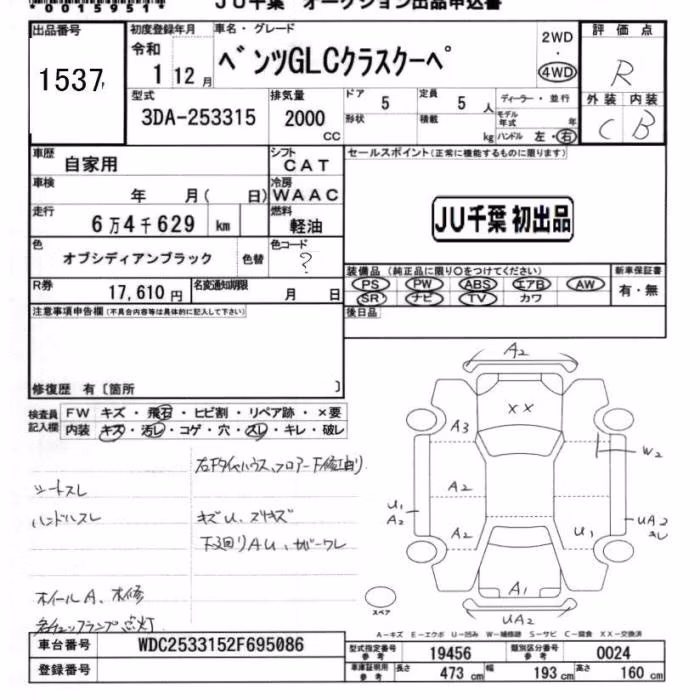 JU千葉 オークション出品申込書
出品番号
1537
初度登録年月
令和
1 12月
車名・グレード
ベンツGLCクラスクーペ
2WD
・
4WD
評価点
R
外装 内装
C B
型式
3DA-253315
排気量
2000
CC
ドア
5
定員
5 人
形状
積載
kg
ディーラー・並行
モデル年式 年
ハンドル 左・右
車歴
自家用
シフト
CAT
車検
年 月( 日)
冷房
WAAC
走行
6万4千629 km
燃料
軽油
色
オブシディアンブラック
色替
色コード
?
R券
17,610円
名変通知期限
月 日
セールスポイント(正常に機能するものに限ります)
JU千葉 初出品
装備品(純正品に限り○をつけてください)
PS PW ABS エアB AW
SR ナビ TV カワ
新車保証書
有・無
後日品
注意事項申告欄(不具合内容等は具体的に記入して下さい)
修復歴 有〔箇所 〕
検査員記入欄
FW キズ・飛石・ヒビ割・リペア跡・×要
内装 キズ・汚レ・コゲ・穴・スレ・キレ・破レ
右Fタイヤハウス、フロアー下修正有り
シートスレ
ハンドルスレ
キズU、ズキズ
下廻りAU、サビ
ホイールA、
点灯
A2
XX
A3
W2
A2
U1
A2
A2
U1
UA2
キレ
A1
UA2
スペア
A-キズ E-エクボ U-凹み W-補修跡 S-サビ C-腐食 XX-交換済
車台番号
WDC2533152F695086
登録番号
型式指定番号 参考
19456
類別区分番号 参考
0024
車庫証明用 参考
長さ 473 cm 幅 193 cm 高さ 160 cm